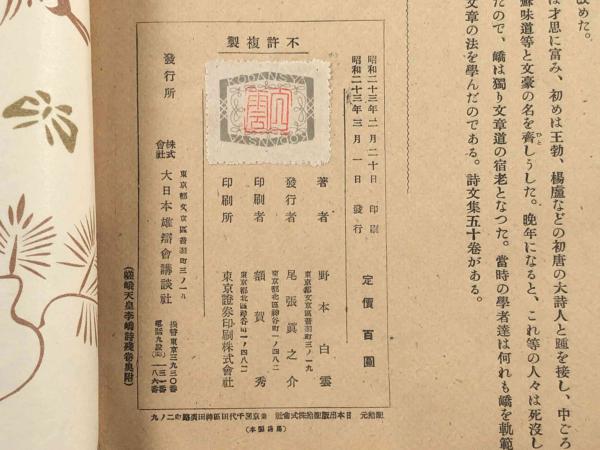 改めた。
は才思に富み、初めは王勃、楊盧などの初唐の大詩人と踵を接し、中ごろ
蘇味道等と文豪の名を齊しうした。晩年になると、これ等の人々は死沒し
たので、嶠は獨り文章道の宿老となつた。當時の學者達は何れも嶠を軌範
文章の法を學んだのである。詩文集五十卷がある。
不許複製
KODANSYA
昭和二十三年二月二十日 印刷
昭和二十三年三月一日 發行
定價百圓
著者 野本白雲
東京都文京區音羽町三ノ一九
發行者 尾張眞之介
東京都北區神谷町一ノ四八二
印刷者 額賀秀
東京都北區神谷町一ノ四八二
印刷所 東京證券印刷株式會社
發行所
東京都文京區音羽町三ノ一九
株式會社 大日本雄辯會講談社
振替東京三九三〇番
(嵯峨天皇李嶠詩殘卷奥附)
配給元 日本出版配給株式會社 東京都千代田區神田淡路町二ノ九